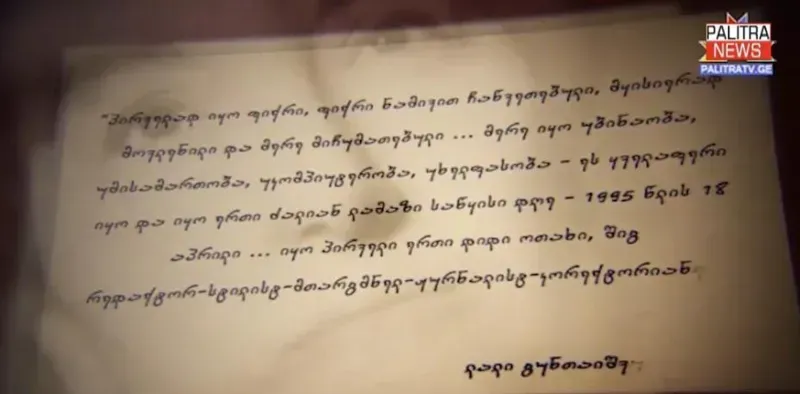 PALITRA
NEWS
PALITRATV.GE
"პირველად იყო ფიქრი, ფიქრი ნამივით ჩაწვეთებული, მყისიერად
მოვლენილი და მერე მიჩუმათებული ... მერე იყო უბინაობა,
უმისამართობა, უკომპიუტერობა, უხელფასობა - ეს ყველაფერი
იყო და იყო ერთი ძალიან ლამაზი საწყისი დღე - 1995 წლის 18
აპრილი ... იყო პირველი ერთი დიდი ოთახი, შიგ
რედაქტორ-სტილისტ-მთარგმნელ-ჟურნალისტ-კორექტორიან
ლალი